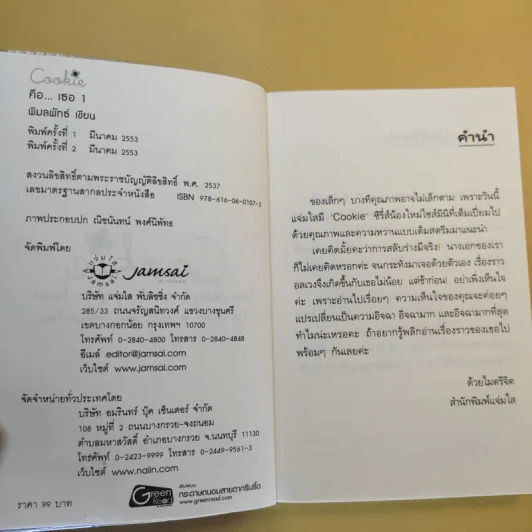 Cookie
คือ... เธอ 1
พิมลพัทธ์ เขียน
พิมพ์ครั้งที่ 1 มีนาคม 2553
พิมพ์ครั้งที่ 2 มีนาคม 2553
สงวนลิขสิทธิ์ตามพระราชบัญญัติลิขสิทธิ์ พ.ศ. 2537
เลขมาตรฐานสากลประจำหนังสือ ISBN 978-616-06-0107-3
ภาพประกอบปก ณิชนันทน์ พงศ์นิพัทธ
จัดพิมพ์โดย
แจ่มใส
Jamsai
jamsai
บริษัท แจ่มใส พับลิชชิ่ง จำกัด
285/33 ถนนจรัญสนิทวงศ์ แขวงบางขุนศรี
เขตบางกอกน้อย กรุงเทพฯ 10700
โทรศัพท์ 0-2840-4800 โทรสาร 0-2840-4848
อีเมล์ editor@jamsai.com
เว็บไซต์ www.jamsai.com
จัดจำหน่ายทั่วประเทศโดย
บริษัท อมรินทร์ บุ๊ค เซ็นเตอร์ จำกัด
108 หมู่ที่ 2 ถนนบางกรวย-จงถนอม
ตำบลมหาสวัสดิ์ อำเภอบางกรวย จ.นนทบุรี 11130
โทรศัพท์ 0-2423-9999 โทรสาร 0-2449-9561-3
เว็บไซต์ www.naiin.com
ราคา 99 บาท
Green Read
พิมพ์บน
กระดาษถนอมสายตากรีนรี้ด
www.greenread.com
คำนำ
ของเล็กๆ บางทีคุณภาพอาจไม่เล็กตาม เพราะวันนี้
แจ่มใสมี 'Cookie' ซีรี่ส์น้องใหม่ไซส์มินิที่เต็มเปี่ยมไป
ด้วยคุณภาพและความหวานแบบเต็มสตรีมมาแนะนำ
เคยคิดมั้ยคะว่าการสลับร่างมีจริง! นางเอกของเรา
ก็ไม่เคยคิดหรอกค่ะ จนกระทั่งมาเจอด้วยตัวเอง เรื่องราว
อลเวงจึงเกิดขึ้นกับเธอไม่น้อย แต่ช้าก่อน! อย่าเพิ่งเห็นใจ
ค่ะ เพราะอ่านไปเรื่อยๆ ความเห็นใจของคุณจะค่อยๆ
แปรเปลี่ยนเป็นความอิจฉา อิจฉามาก และอิจฉามากที่สุด
ทำไมน่ะเหรอคะ ถ้าอยากรู้พลิกอ่านเรื่องราวของเธอไป
พร้อมๆ กันเลยค่ะ
ด้วยไมตรีจิต
สำนักพิมพ์แจ่มใส